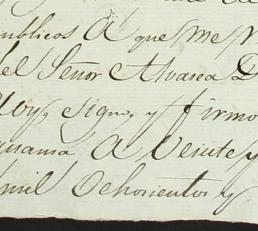 públicos á que me r
del Señor Alvarea D
doy, signo, y firmo
ruama á veinte y
mil ochocientos y